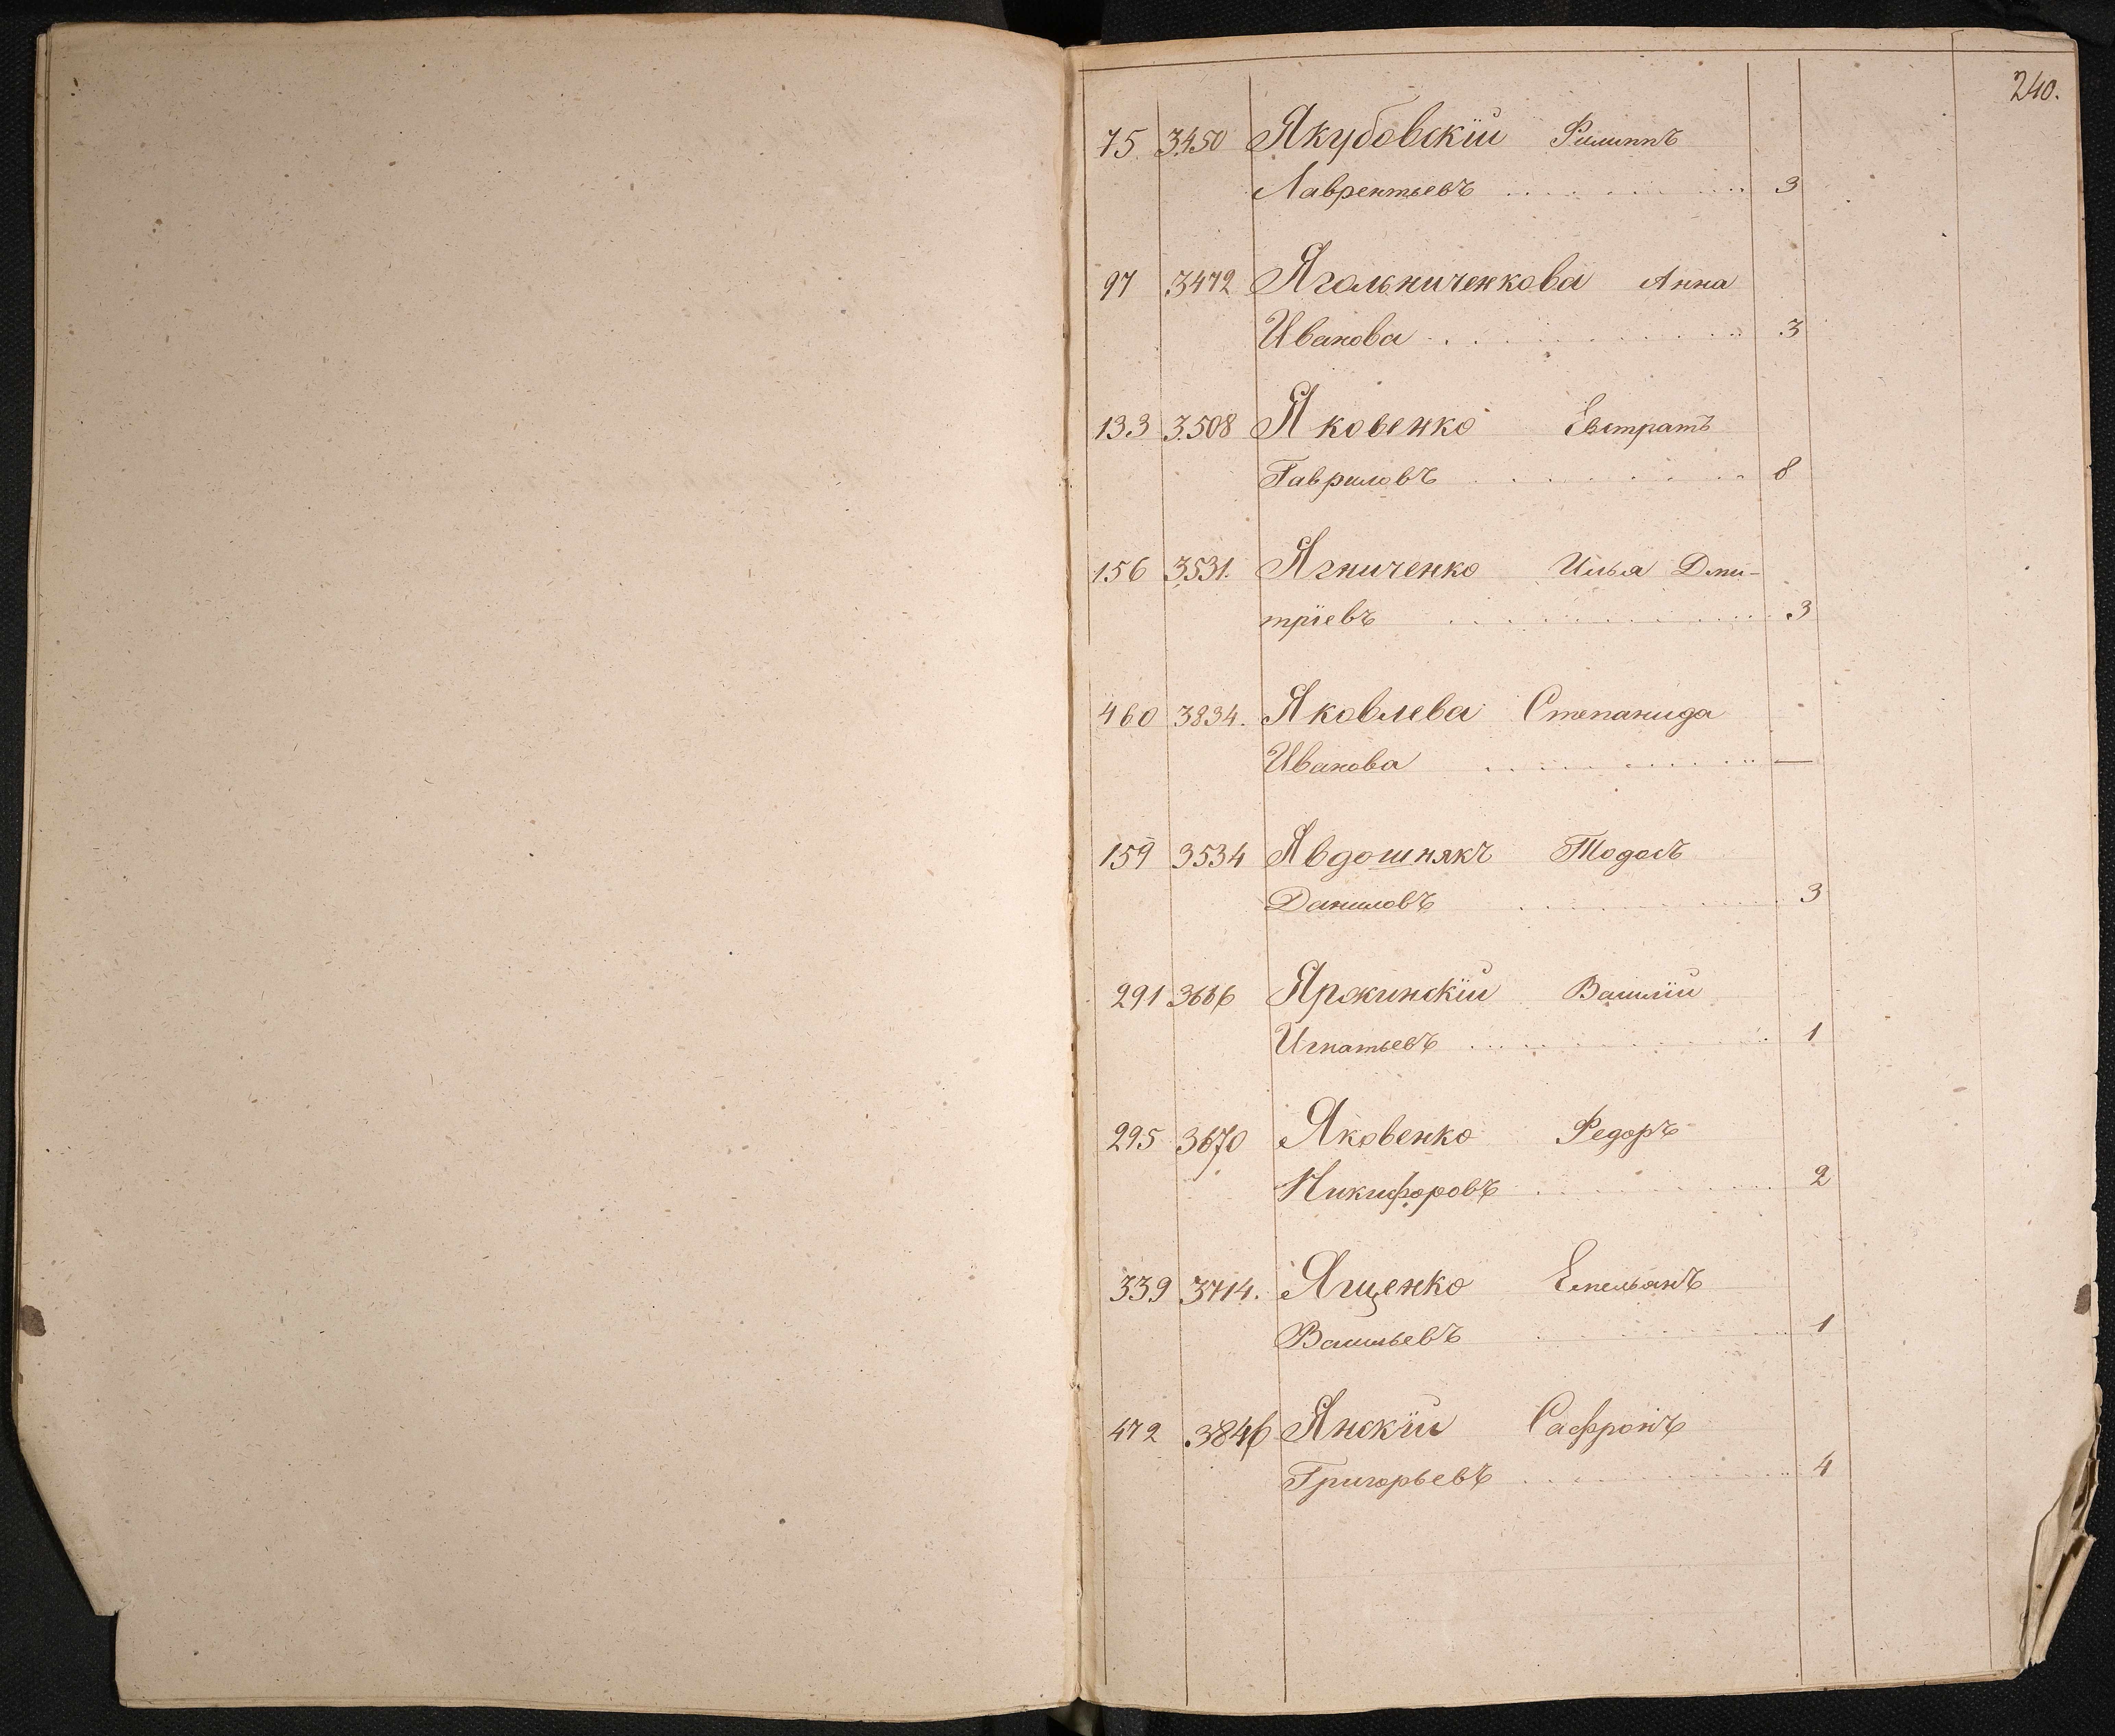 240.
75 3450 Якубовскій Филиппъ
Лаврентьевъ 3
97 3472 Ягольниченкова Анна
Иванова 3
133 3508 Яковенко Евстратъ
Гавриловъ 8
156 3531. Ягниченко Илья Дми-
тріевъ 3
460 3834. Яковлева Степанида
Иванова —
159 3534 Явдошнякъ Тодосъ
Даниловъ 3
291 3666 Ярожинскій Василій
Игнатьевъ 1
295 3670 Яковенко Федоръ
Никифоровъ 2
339 3714. Ященко Емельянъ
Васильевъ 1
472 3846 Янскій Сафронъ
Григорьевъ 4